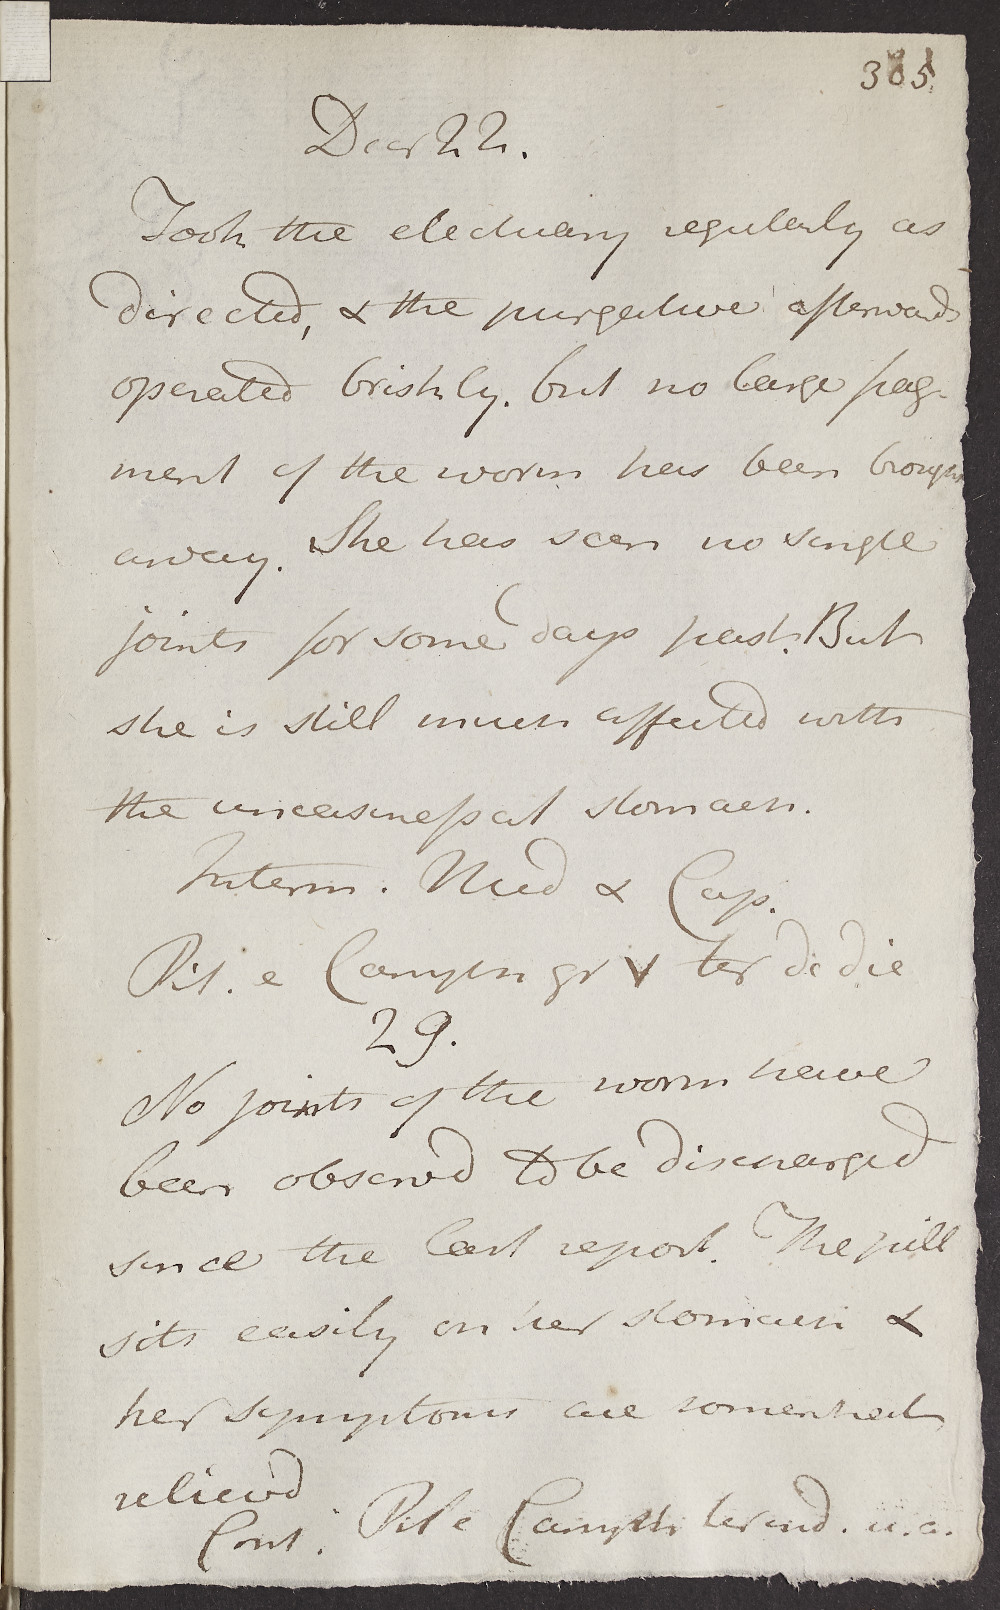 365
Decr 22.
Took the electuary regularly as
directed, & the purgative afterwards
operated briskly. but no large frag-
ment of the worm has been brought
away. She has seen no single
joints for some days past. But
she is still much affected with
the uneasiness at stomach.
Interm. Med & Cap.
Pil. e Camph gr V ter de die
29.
No joints of the worm have
been observd to be discharged
since the last report. The pill
sits easily on her stomach &
her symptoms are somewhat
relievd
Cont. Pil e Camph ter ind. u.a.